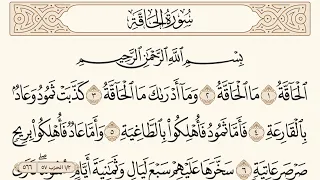 سُورَةُ الحَاقَّةِ
بِسْمِ اللَّهِ الرَّحْمَٰنِ الرَّحِيمِ
الْحَاقَّةُ ١ مَا الْحَاقَّةُ ٢ وَمَا أَدْرَاكَ مَا الْحَاقَّةُ ٣ كَذَّبَتْ ثَمُودُ وَعَادٌ
بِالْقَارِعَةِ ٤ فَأَمَّا ثَمُودُ فَأُهْلِكُوا بِالطَّاغِيَةِ ٥ وَأَمَّا عَادٌ فَأُهْلِكُوا بِرِيحٍ
صَرْصَرٍ عَاتِيَةٍ ٦ سَخَّرَهَا عَلَيْهِمْ سَبْعَ لَيَالٍ وَثَمَٰنِيَةَ أَيَّامٍ